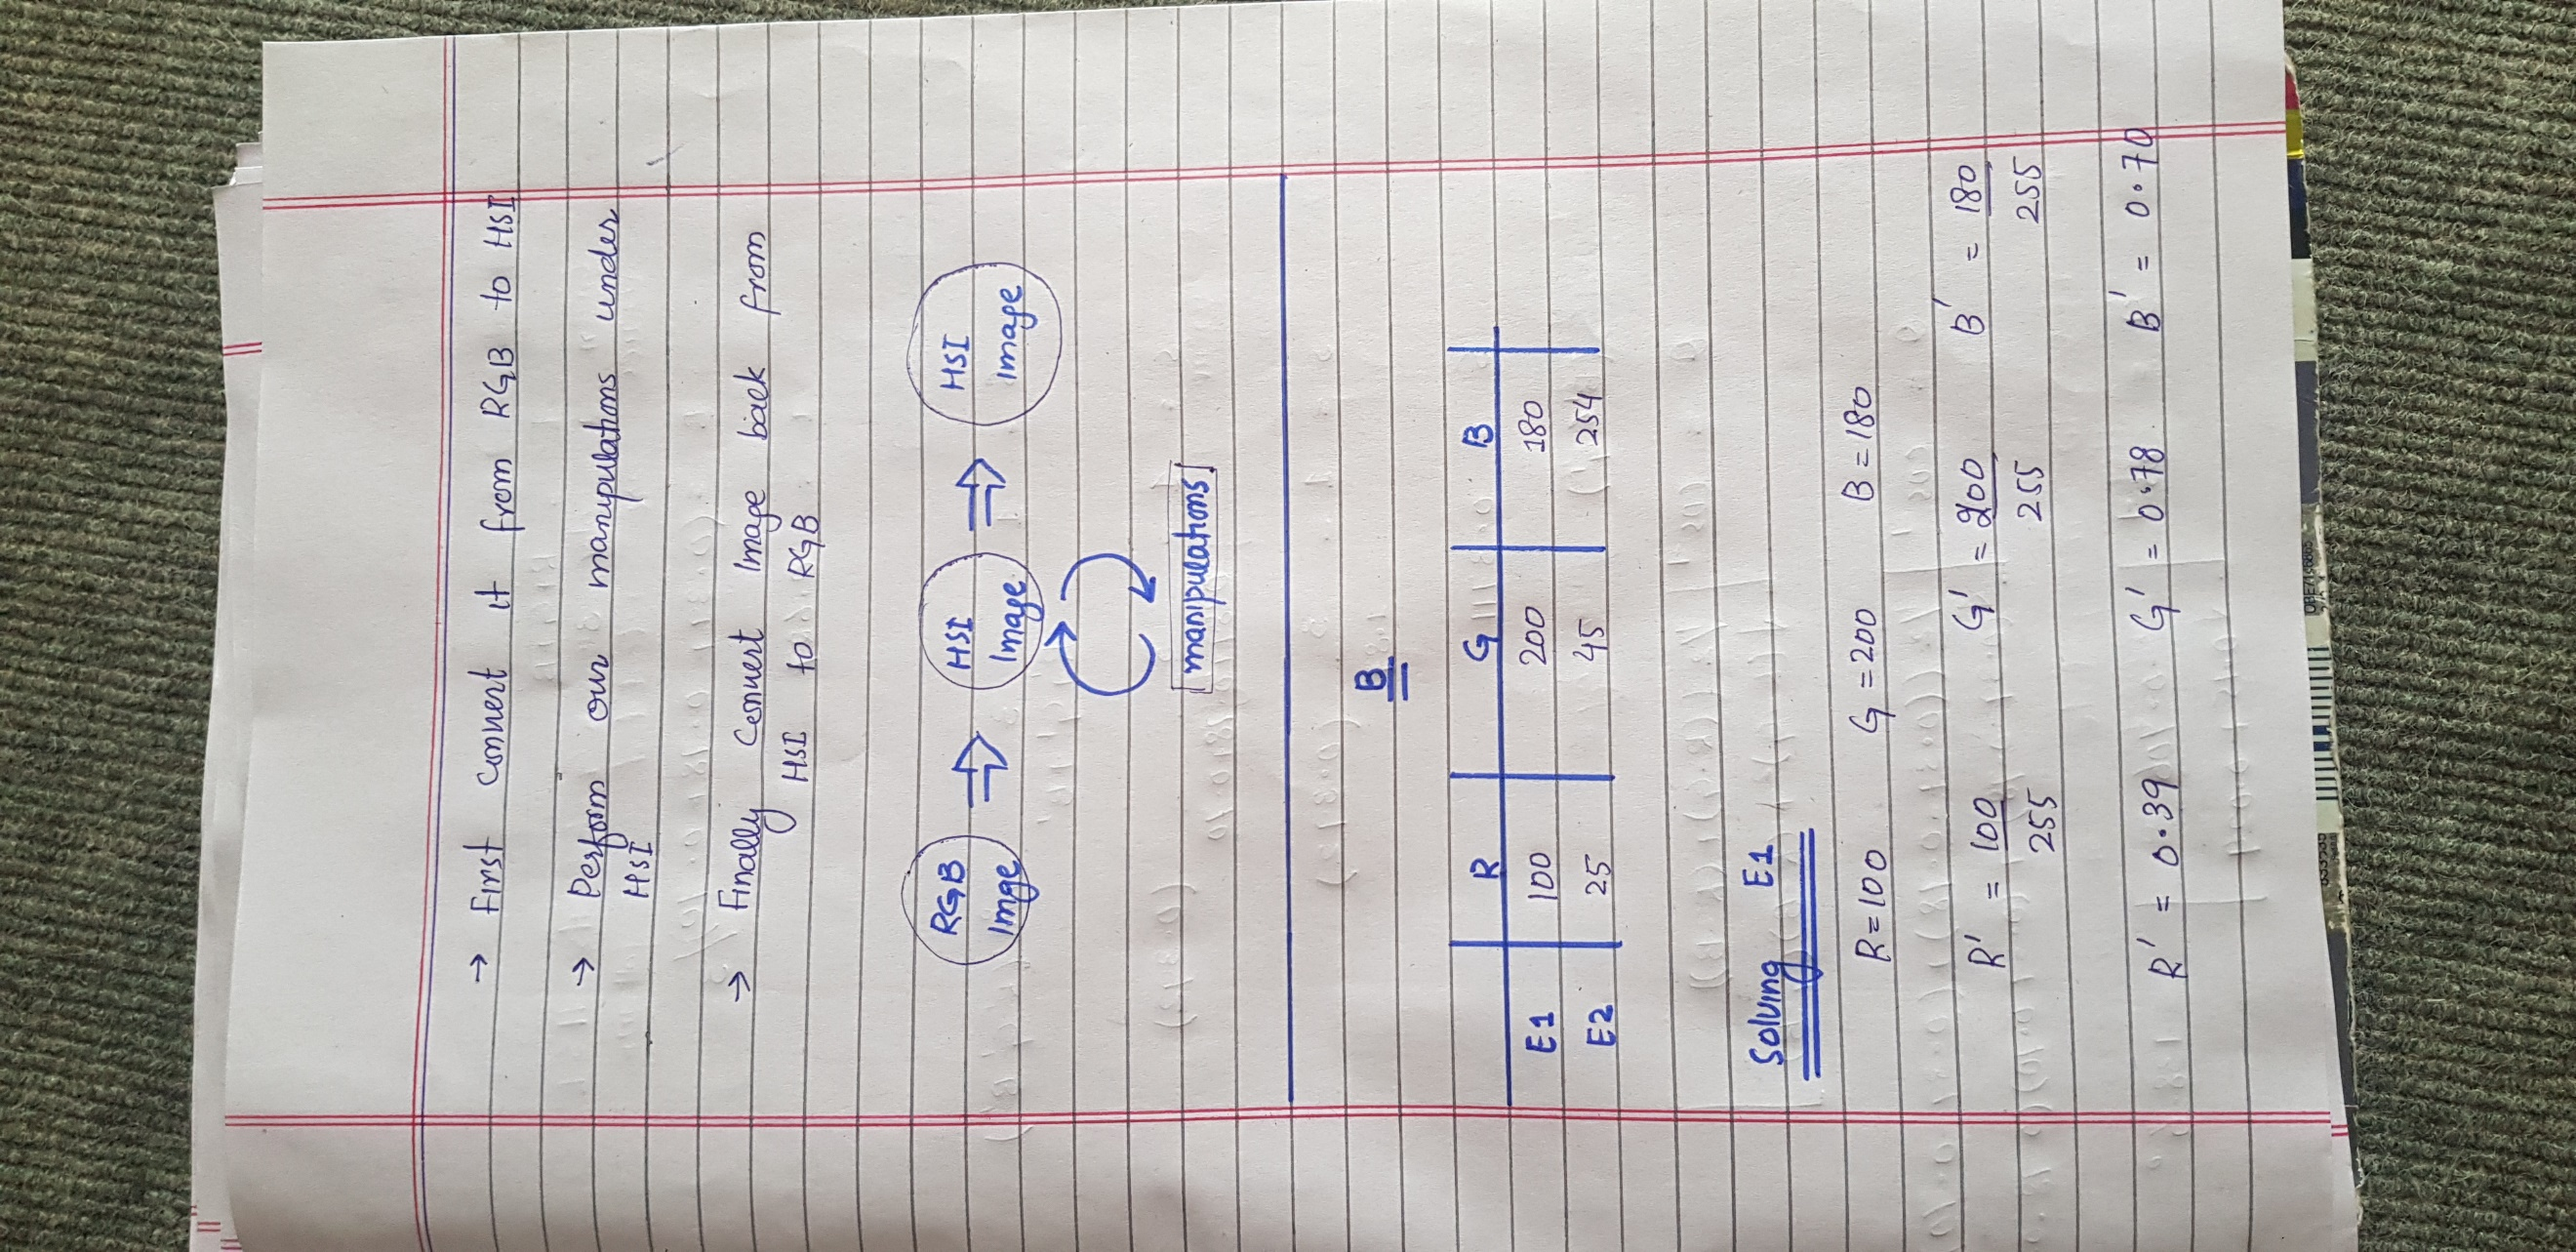 → First convert it from RGB to HSI
→ Perform our manipulations under
HSI
→ Finally Convert Image back from
HSI to RGB
RGB Imge ⇒ HSI Image ⇒ HSI Image
manipulations
B
R G B
E1 100 200 180
E2 25 45 254
Solving E1
R=100 G=200 B=180
R' = 100/255 G' = 200/255 B' = 180/255
R' = 0.39 G' = 0.78 B' = 0.70